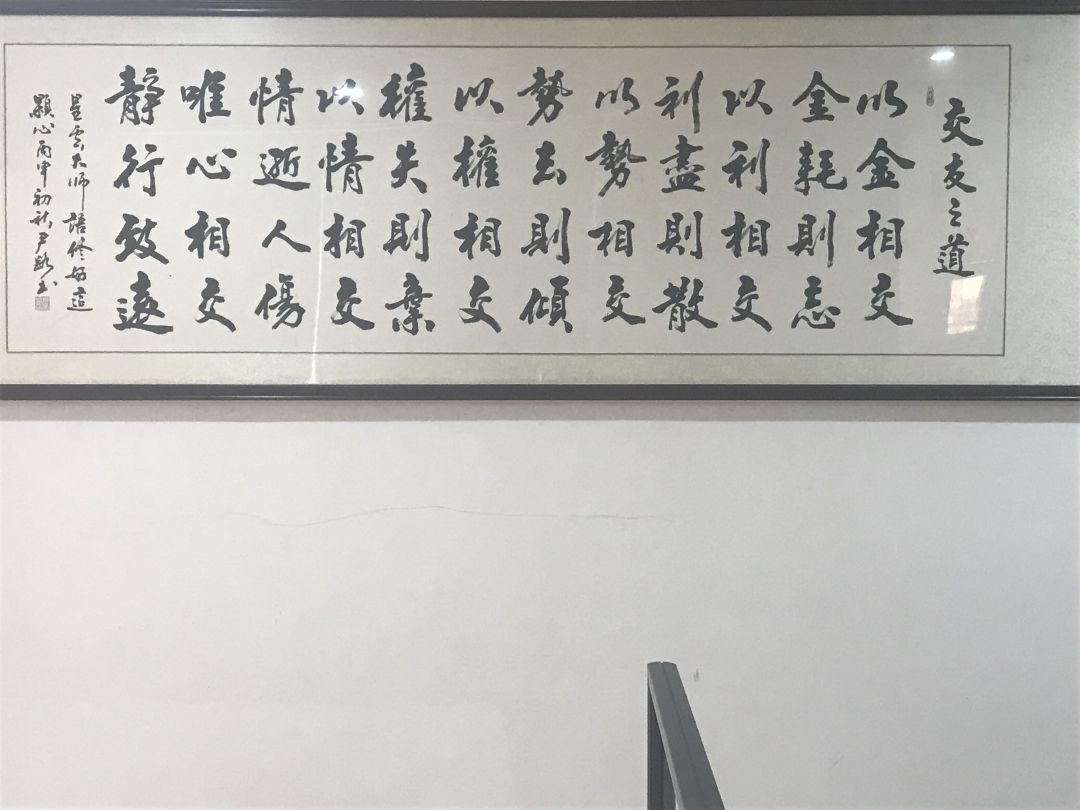 交友之道
以金相交
金耗則忘
以利相交
利盡則散
以勢相交
勢去則傾
以權相交
權失則棄
以情相交
情逝人傷
唯心相交
靜行致遠
星雲大師語修好這
顆心丙申初秋